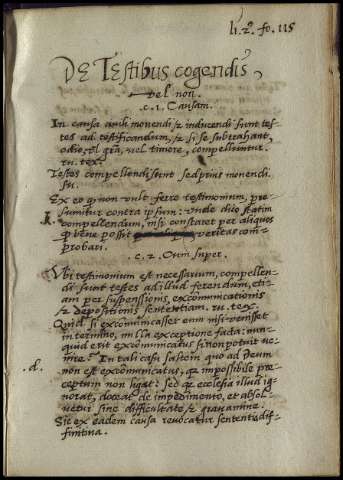 li. 2. fo. 115
DE TEstibus cogendis,
vel non.
c. 1. Causam.
In causa civili monendi & inducendi sunt tes-
tes ad testificandum, & si se subtrahant,
odio, vel gra, vel timore, compelluntur.
tex.
Testes compellendi sunt sed prius monendi.
Ex eo quod non vult ferre testimonium, pre-
sumitur contra ipsum: unde dico statim
compellendum, nisi constaret per aliquos
bene possit veritas com-
probari.
c. 2. Cum super.
Ubi testimonium est necessarium, compellen-
di sunt testes ad illud ferendum, eti-
am per suspensionis, excommunicationis
& depositionis sententiam. tex.
Quid si excommunicasset eum nisi venisset
in termino, nulla exceptione facta: nun-
quid erit excommunicatus si non potuit ve-
nire? In tali casu saltem quo ad Deum
.d. non est excommunicatus, quia impossibile pre-
ceptum non ligat: sed quia ecclesia illud ig-
norat, doceat de impedimento, et absol-
vetur sine difficultate & gravamine.
Sic ex eadem causa revocatur sententia dif-
finitiva.